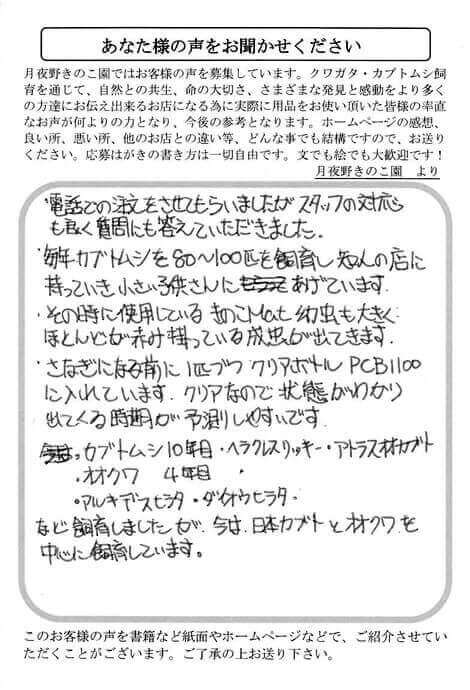 あなた様の声をお聞かせください
月夜野きのこ園ではお客様の声を募集しています。クワガタ・カブトムシ飼
育を通じて、自然との共生、命の大切さ、さまざまな発見と感動をより多く
の方達にお伝え出来るお店になる為に実際に用品をお使い頂いた皆様の率直
なお声が何よりの力となり、今後の参考となります。ホームページの感想、
良い所、悪い所、他のお店との違い等、どんな事でも結構ですので、お送り
ください。応募はがきの書き方は一切自由です。文でも絵でも大歓迎です！
月夜野きのこ園　より
・電話での注文をさせてもらいましたが スタッフの対応
も良く質問にも答えていただきました。
・毎年カブトムシを80～100匹を飼育し 知人の店に
持っていき小さい子供さんに あげています。
・その時に使用している きのこMatも幼虫も大きく
ほとんどが赤み掛っている成虫が出てきます。
・さなぎになる前に 1匹づつ クリアボトル PCB1100
に入れています。クリアなので 状態がわかり
出てくる時期が予測しやすいです。
カブトムシ10年目・ヘラクレスリッキー・アトラスオオカブト
・オオクワ 4年目
・アルキデスヒラタ・ダイオウヒラタ・
など飼育しましたが、今は、日本カブトとオオクワを
中心に飼育しています。
このお客様の声を書籍など紙面やホームページなどで、ご紹介させてい
ただくことがございます。ご了承の上お送り下さい。